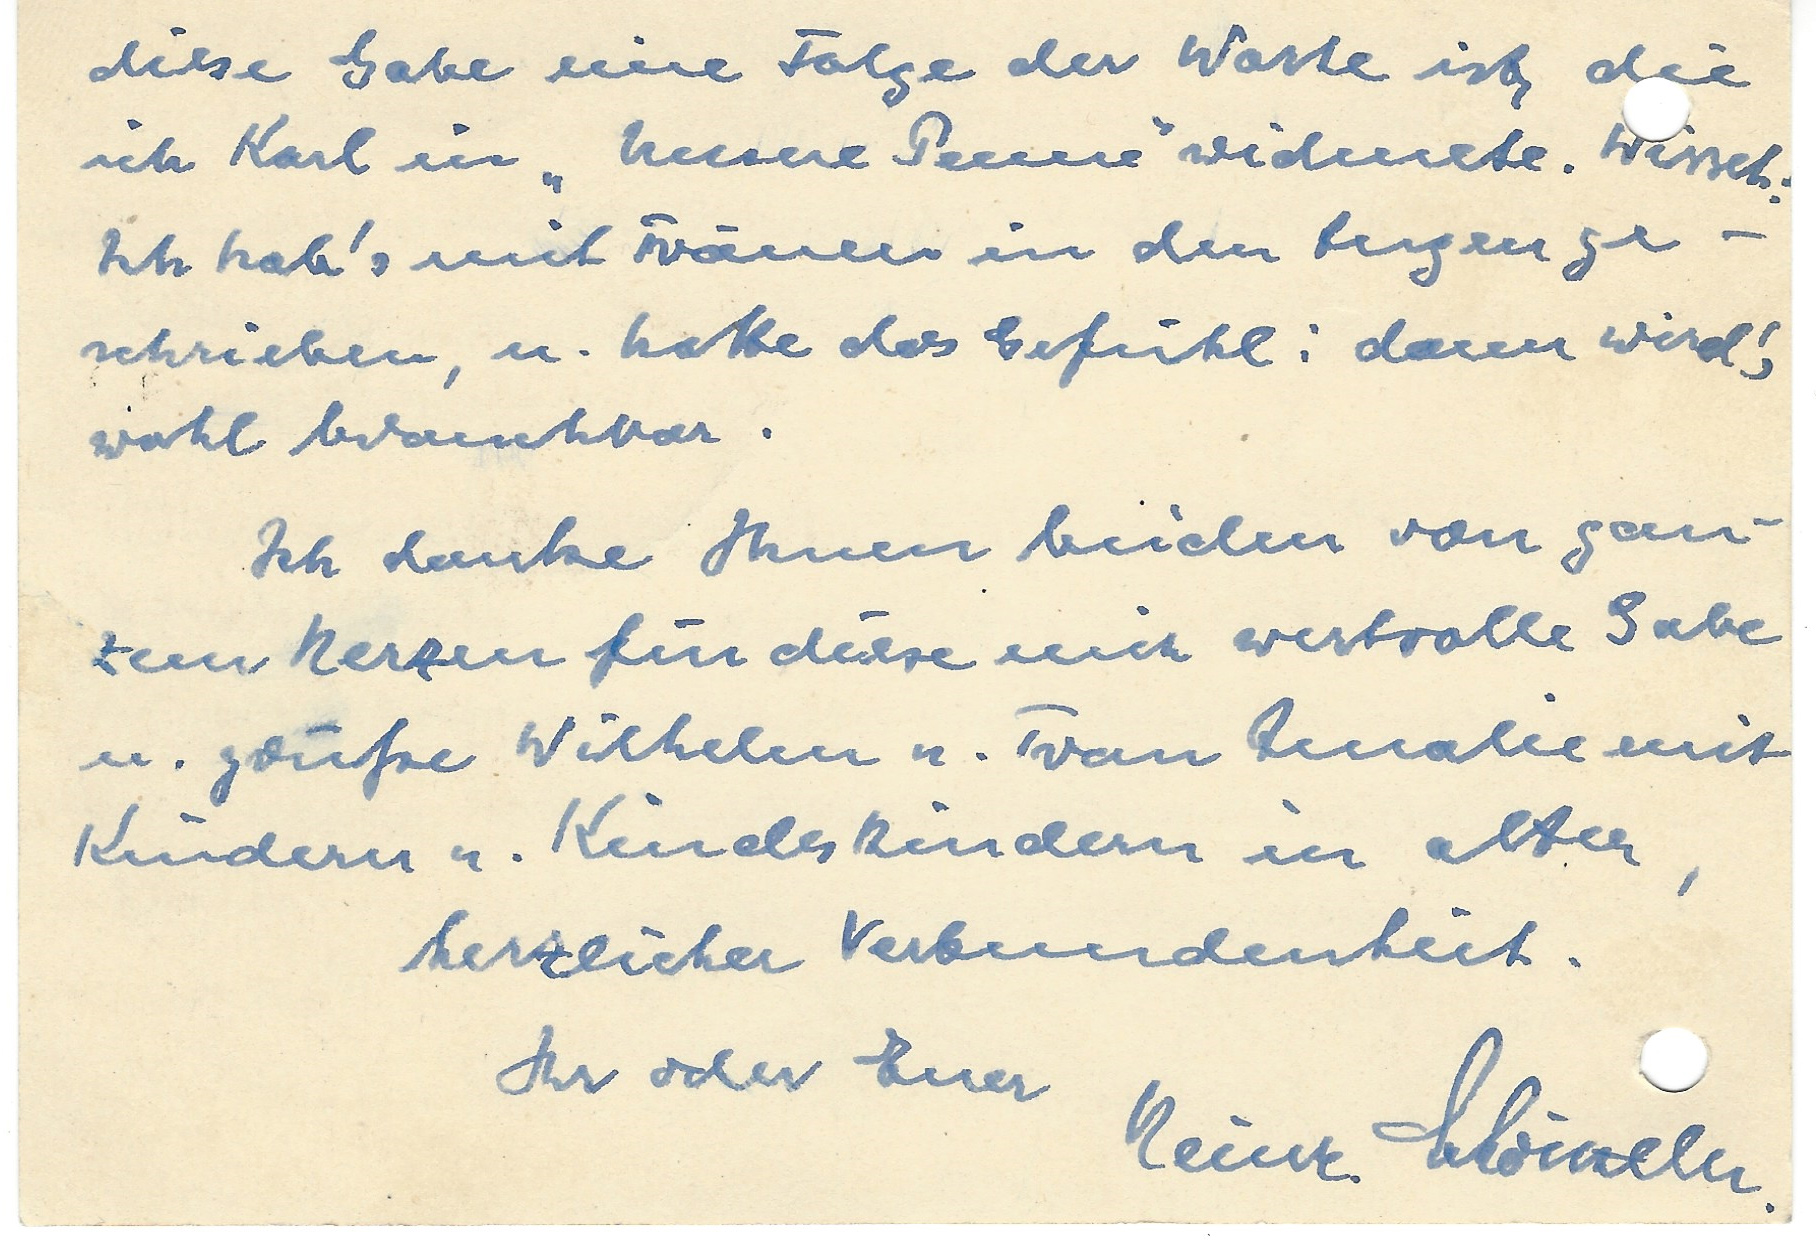 diese Gabe eine Folge der Worte ist, die
ich Karl in „Unsere Penne" widmete. Wissen:
Ich hab's mit Tränen in den Augen ge-
schrieben, u. hatte das Gefühl: dann wird's
wohl brauchbar.
Ich danke Ihnen beiden von gan-
zem Herzen für diese mir wertvolle Gabe
u. grüße Wilhelm u. Frau Amalie mit
Kindern u. Kindeskindern in alter,
herzlicher Verbundenheit.
Ihr oder Euer
Heinr.